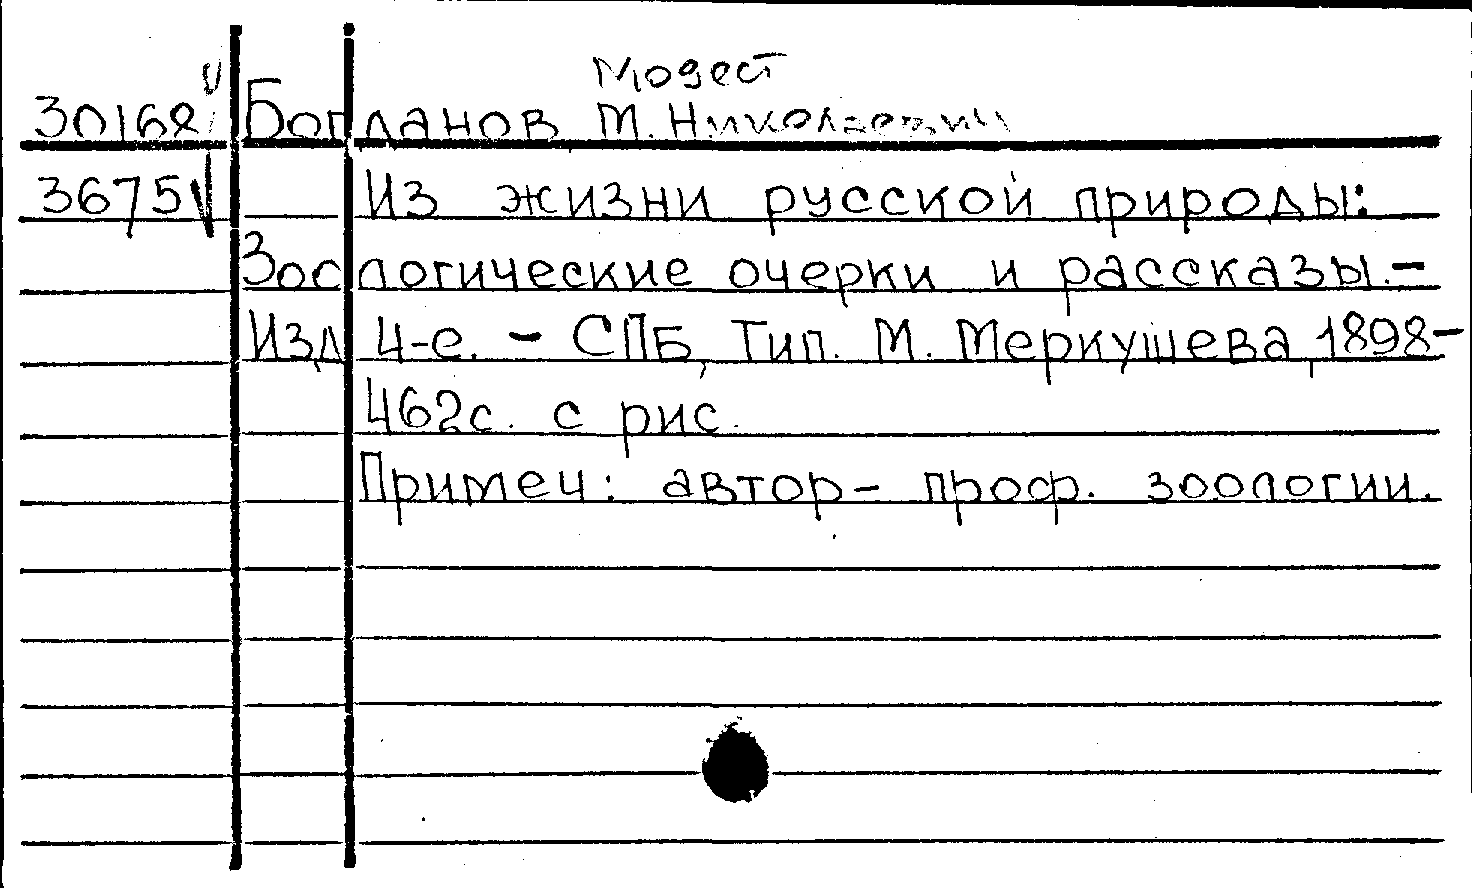 Модест
30168 Богданов М. Николаевич
3675 Из жизни русской природы:
Зоологические очерки и рассказы.-
Изд 4-е. - СПБ, Тип. М. Меркушева, 1898-
462с. с рис.
Примеч: автор- проф. зоологии.